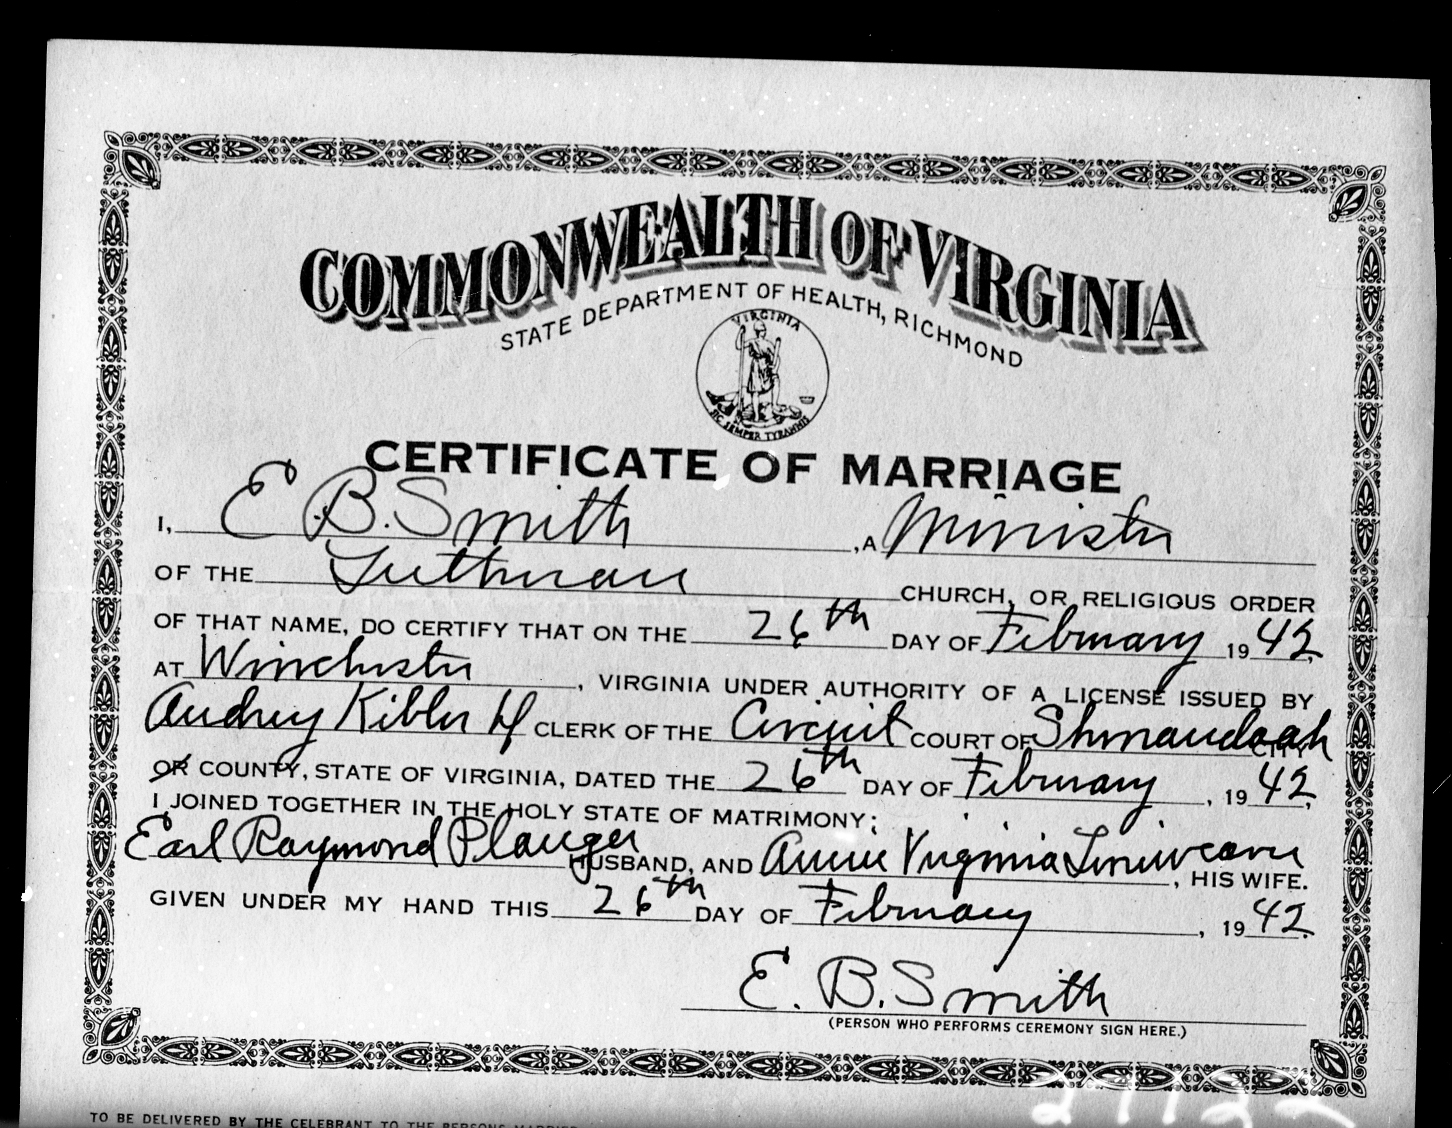 COMMONWEALTH OF VIRGINIA
STATE DEPARTMENT OF HEALTH, RICHMOND
VIRGINIA
SIC SEMPER TYRANNIS
CERTIFICATE OF MARRIAGE
I, E B. Smith, A Minister
OF THE Lutheran CHURCH, OR RELIGIOUS ORDER
OF THAT NAME, DO CERTIFY THAT ON THE 26th DAY OF February 1942
AT Winchester, VIRGINIA UNDER AUTHORITY OF A LICENSE ISSUED BY
Audrey Kibler CLERK OF THE Circuit COURT OF Shenandoah CITY
OR COUNTY, STATE OF VIRGINIA, DATED THE 26th DAY OF February, 1942.
I JOINED TOGETHER IN THE HOLY STATE OF MATRIMONY:
Earl Raymond Plauger HUSBAND, AND Annie Virginia Lineweaver, HIS WIFE.
GIVEN UNDER MY HAND THIS 26th DAY OF February, 1942.
E. B. Smith
(PERSON WHO PERFORMS CEREMONY SIGN HERE.)
TO BE DELIVERED BY THE CELEBRANT TO THE PERSONS MARRIED